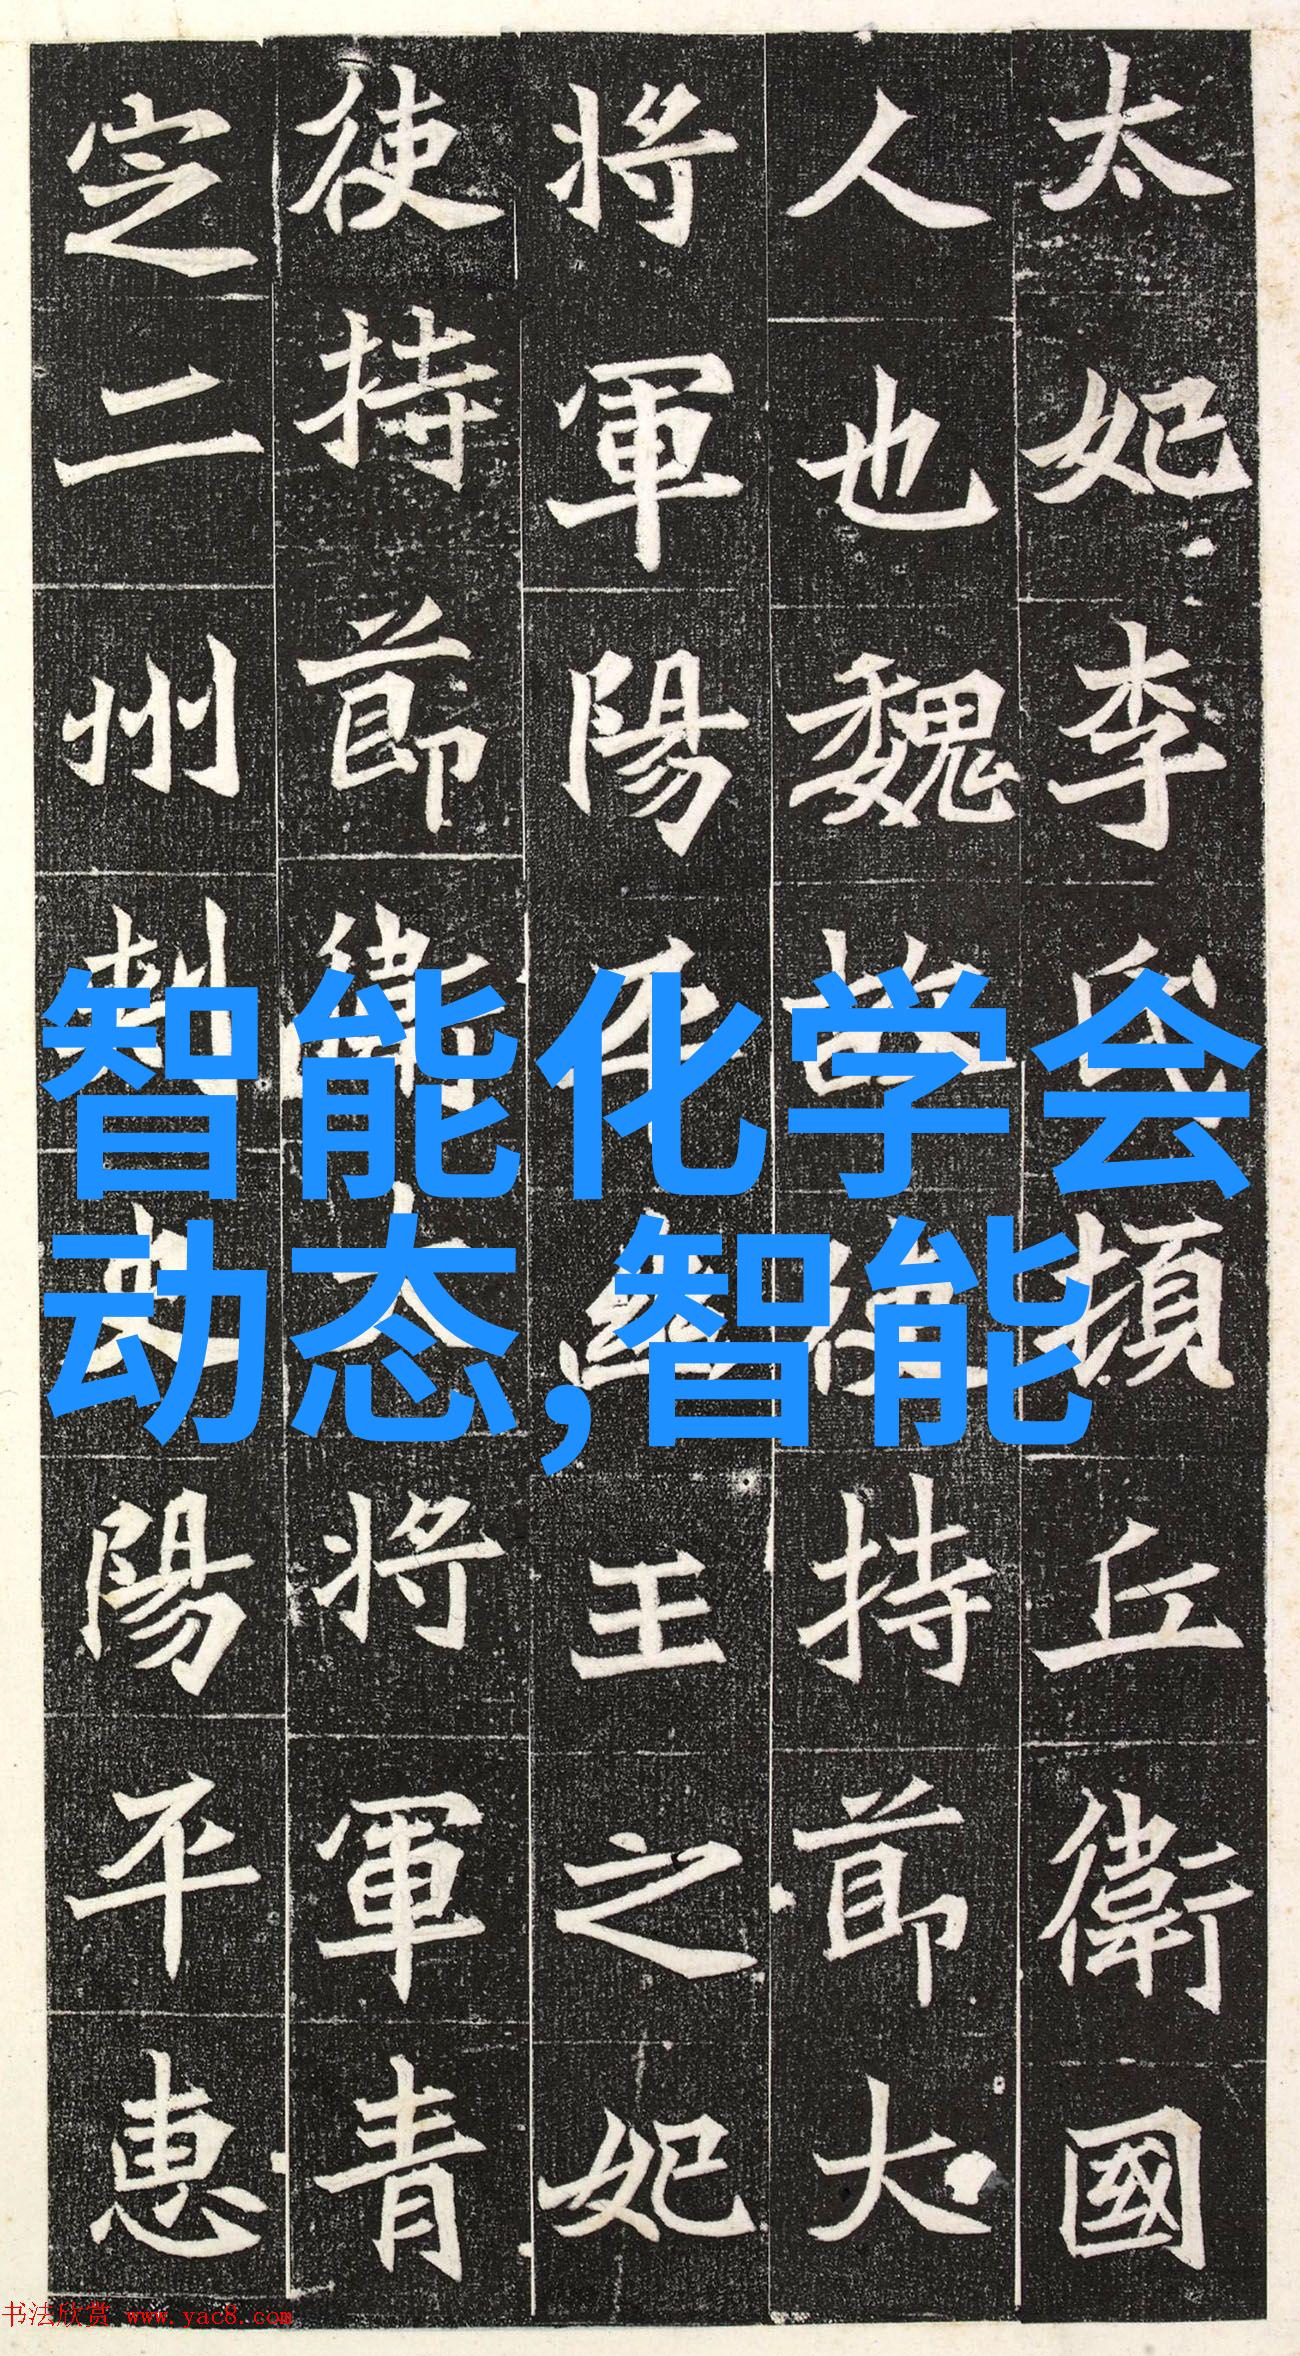 太妃李氏頓丘衛國
人也魏故使持節大
將軍陽平幽王之妃
使持節衛大將軍青
定二州刺史陽平惠
智能化学会
动态,智能
书法欣赏 www.yac8.com